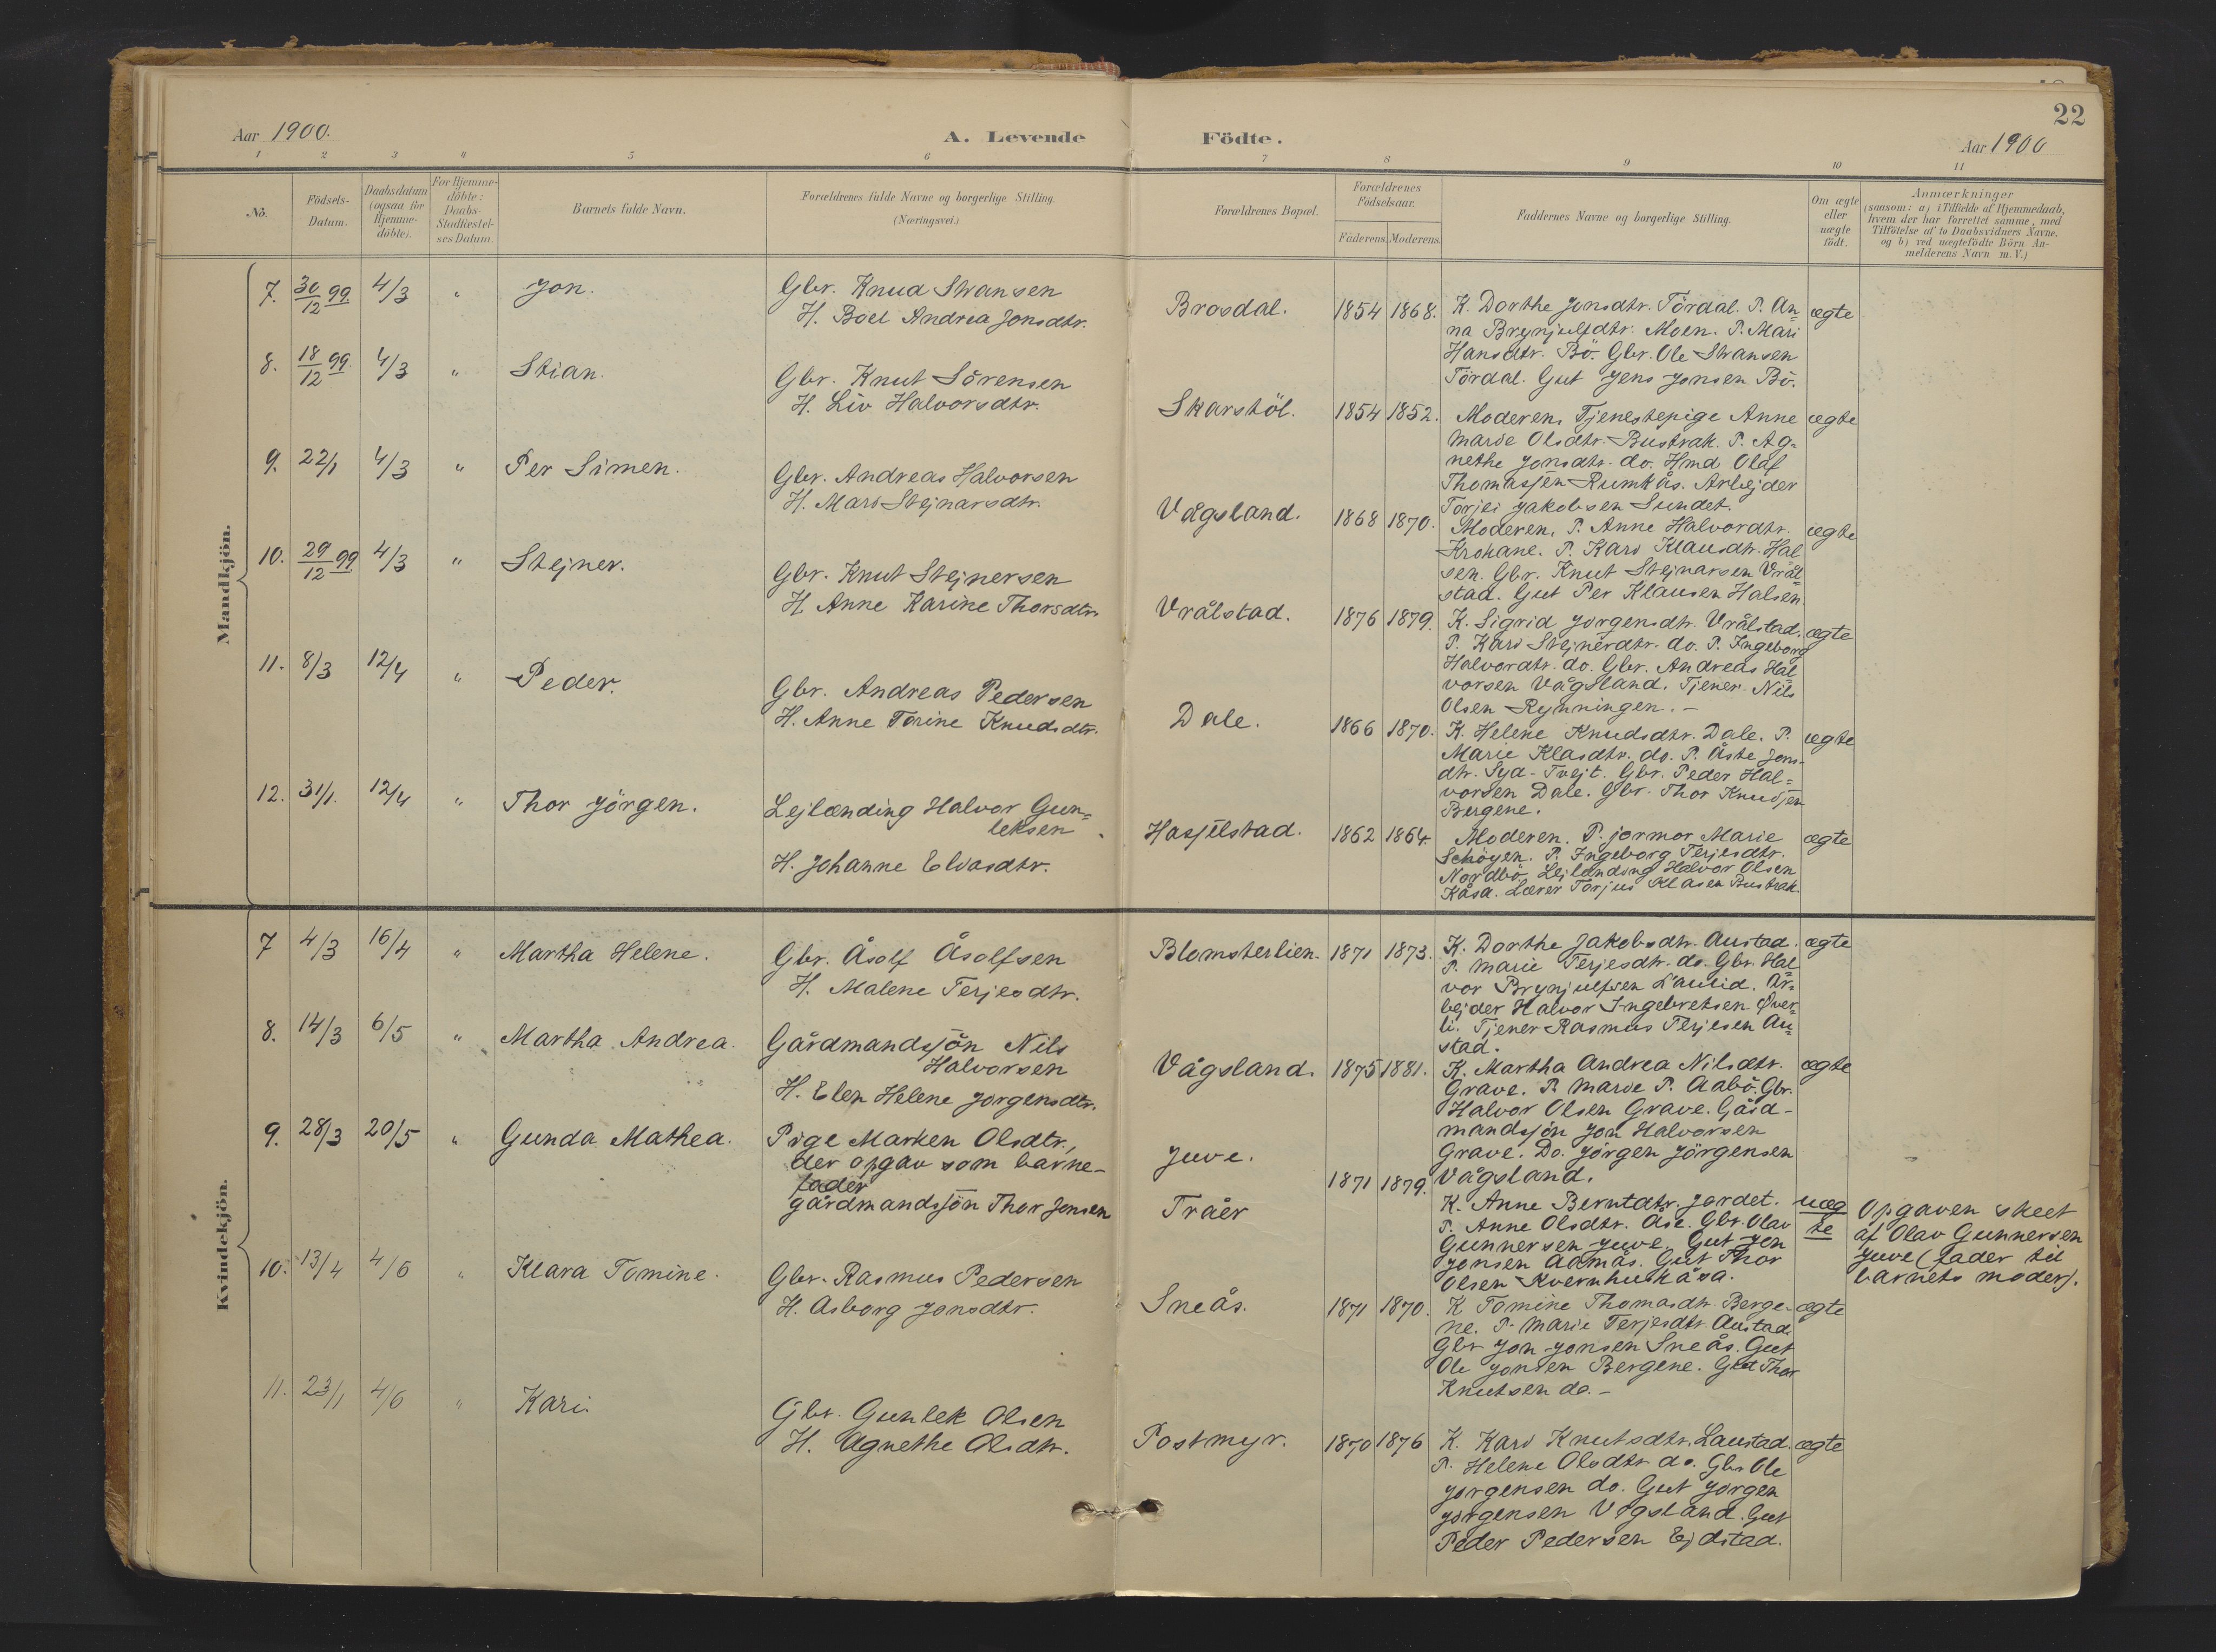 22
Aar 1900.
A. Levende
Födte.
Aar 1900
1 2 3 4 5 6 7 8 9 10 11
No.
Födsels-
Datum.
Daabsdatum
(ogsaa for
Hjemme-
döbte).
For Hjemme-
döbte:
Daabs-
Stadfæstel-
ses Datum.
Barnets fulde Navn.
Forældrenes fulde Navne og borgerlige Stilling.
(Næringsvei.)
Forældrenes Bopæl.
Forældrenes
Födselsaar.
Faderens.
Moderens.
Faddernes Navne og borgerlige Stilling.
Om ægte
eller
uægte
födt.
Anmærkninger
(saasom: a) i Tilfælde af Hjemmedaab,
hvem der har forrettet samme, med
Tilföielse af to Daabsvidners Navne,
og b) ved uægtefödte Börn An-
melderens Navn m. V.)
Mandkjön.
7. 30/12 99. 4/3 " Jon.
Gbr. Knud Svansen
H. Boel Andrea Jonsdtr.
Brosdal. 1854 1868.
K. Dorthe Jonsdtr. Tördal. P. An-
na Brynjulfdtr. Moen. P. Mari
Hansdtr. Bö. Gbr. Ole Svansen
Tördal. Gut Jens Jonsen Bö.
ægte
8. 18/12 99. 4/3 " Stian.
Gbr. Knut Sörensen
H. Liv Halvorsdtr.
Skarstöl. 1854 1852.
Moderen, Tjenestepige Anne
Marie Olsdtr. Bustrak. P. Ag-
nethe Jonsdtr. do. Hmd Olaf
Thomasjen Rumkås. Arbejder
Torjei Jakobsen Sundet.
ægte
9. 22/1 4/3 " Per Simen.
Gbr. Andreas Halvorsen
H. Mari Stejnarsdtr.
Vågsland. 1868 1870.
Moderen, P. Anne Halvordtr.
Krohane. P. Kari Klausdtr. Hal
sen. Gbr. Knut Stejnarsen Vrål
stad. Gut Per Klausen Halsen.
ægte
10. 29/12 99 4/3 " Stejner.
Gbr. Knut Stejnersen
H. Anne Karine Thorsdtr.
Vrålstad. 1876 1879.
K. Sigrid Jorgensdtr. Vrålstad.
P. Kari Stejnerdtr. do. P. Ingeborg
Halvordtr. do. Gbr. Andreas Hal
vorsen Vågsland. Tjener Nils
Olsen Rynningen. -
ægte
11. 8/3 12/4 " Peder.
Gbr. Andreas Pedersen
H. Anne Torine Knudsdtr.
Dale. 1866 1870.
K. Helene Knudsdtr. Dale. P.
Marie Klasdtr. do. P. Åste Jons-
dtr. Syd-Tvejt. Gbr. Peder Hal-
vorsen Dale. Gbr. Thor Knudsen
Bergene.
ægte
12. 31/1. 12/4 " Thor Jörgen.
Lejlænding Halvor Gun-
leksen
H. Johanne Eliasdtr.
Hasjelstad. 1862 1864.
Moderen. P. jormor Marie
Schöyen. P. Ingeborg Terjesdtr.
Nordbö. Lejlænding Halvor Olsen
Kåsa. Lærer Torjus Klasen Bustrak.
ægte
Kvindekjön.
7 4/3 16/4 " Martha Helene.
Gbr. Åsolf Åsolfsen
H. Malene Terjesdtr.
Blomsterlien. 1871 1873.
K. Dorthe Jakobsdtr. Austad.
P. Marie Terjesdtr. do. Gbr. Hal
vor Brynjulfsen Lauvid. Ar-
bejder Halvor Ingebretsen Över-
li. Tjener Rasmus Terjesen Au
stad.
ægte
8. 14/3 6/5 " Martha Andrea.
Gårdmandsjön Nils
Halvorsen
H. Elen Helene Jorgensdtr.
Vågsland. 1875 1881.
K. Martha Andrea Nilsdtr.
Grave. P. Marie P. Aabö. Gbr.
Halvor Olsen Grave. Gård-
mandsjön Jon Halvorsen
Grave. Do. Jörgen Jörgensen
Vågsland.
ægte
9. 28/3 20/5 " Gunda Mathea.
Pige Marken Olsdtr.,
der opgav som barne-
fader
gårdmandsjön Thor Jonsen
Juve.
Tråer
1871 1879.
K. Anne Berntdtr. Jordet.
P. Anne Olsdtr. Åse. Gbr. Olav
Gunnersen Juve. Gut Jon
Jonsen Aamås. Gut Thor
Olsen Kvernhuskåsa.
uæg
te
Opgaven skeet
af Olav Gunnersen
Juve (fader til
barnets moder).
10. 13/4 4/6 " Klara Tomine.
Gbr. Rasmus Pedersen
H. Asborg Jonsdtr.
Sneås. 1871 1870.
K Tomine Thomasdtr. Berge-
ne. P. Marie Terjesdtr Austad.
Gbr Jon Jonsen Sneås. Gut
Ole Jonsen Bergene. Gut Thor
Knutsen do. -
ægte
11. 23/1 4/6 " Kari.
Gbr. Gunlek Olsen
H. Agnethe Olsdtr.
Postmyr. 1870 1876
K. Kari Knutsdtr. Laustad.
P. Helene Olsdtr do. Gbr Ole
Jorgensen do. Gut Jorgen
Jorgensen Vågsland. Gut
Peder Pedersen Ejdstad.
ægte